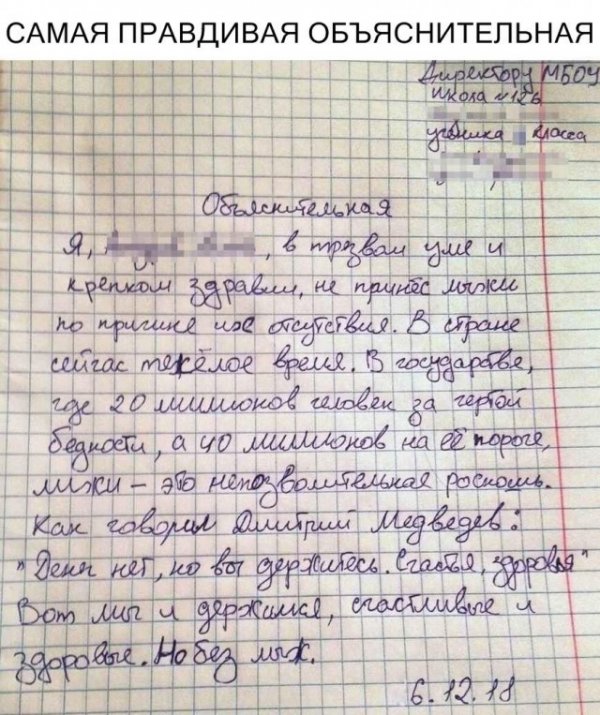 САМАЯ ПРАВДИВАЯ ОБЪЯСНИТЕЛЬНАЯ
Директору МБОУ
школа №126
ученика класса
Объяснительная
Я, , в трезвом уме и
крепком здравии, не принёс лыжи
по причине их отсутствия. В стране
сейчас тяжёлое время. В государстве,
где 20 миллионов человек за чертой
бедности, а 40 миллионов на её пороге,
лыжи – это непозволительная роскошь.
Как говорил Дмитрий Медведев:
"Денег нет, но вы держитесь. Счастья, здоровья"
Вот мы и держимся, счастливые и
здоровые. Но без лыж.
6.12.18